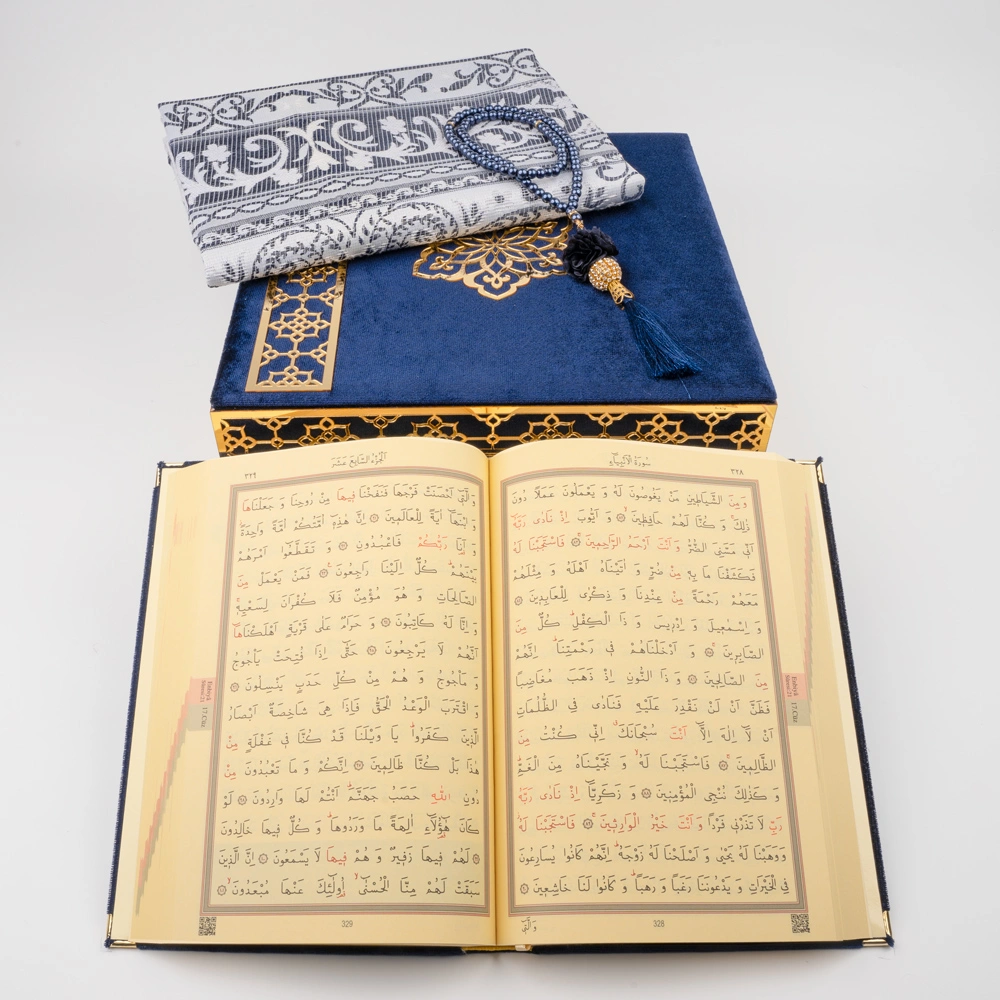 سُورَةُ الْاَنْبِيَاءِ ٣٢٨
وَمِنَ الشَّيَاطِينِ مَنْ يَغُوصُونَ لَهُ وَيَعْمَلُونَ عَمَلًا دُونَ
ذٰلِكَ وَكُنَّا لَهُمْ حَافِظِينَ وَاَيُّوبَ اِذْ نَادٰى رَبَّهُ
اَنِّى مَسَّنِىَ الضُّرُّ وَاَنْتَ اَرْحَمُ الرَّاحِمِينَ فَاسْتَجَبْنَا لَهُ
فَكَشَفْنَا مَا بِهِ مِنْ ضُرٍّ وَاٰتَيْنَاهُ اَهْلَهُ وَمِثْلَهُمْ
مَعَهُمْ رَحْمَةً مِنْ عِنْدِنَا وَذِكْرٰى لِلْعَابِدِينَ
وَاِسْمٰعِيلَ وَاِدْرِيسَ وَذَا الْكِفْلِ كُلٌّ مِنَ
الصَّابِرِينَ وَاَدْخَلْنَاهُمْ فِى رَحْمَتِنَا اِنَّهُمْ
مِنَ الصَّالِحِينَ وَذَا النُّونِ اِذْ ذَهَبَ مُغَاضِبًا
فَظَنَّ اَنْ لَنْ نَقْدِرَ عَلَيْهِ فَنَادٰى فِى الظُّلُمَاتِ
اَنْ لَا اِلٰهَ اِلَّا اَنْتَ سُبْحَانَكَ اِنِّى كُنْتُ مِنَ
الظَّالِمِينَ فَاسْتَجَبْنَا لَهُ وَنَجَّيْنَاهُ مِنَ الْغَمِّ
وَكَذٰلِكَ نُنْجِى الْمُؤْمِنِينَ وَزَكَرِيَّا اِذْ نَادٰى رَبَّهُ
رَبِّ لَا تَذَرْنِى فَرْدًا وَاَنْتَ خَيْرُ الْوَارِثِينَ فَاسْتَجَبْنَا لَهُ
وَوَهَبْنَا لَهُ يَحْيٰى وَاَصْلَحْنَا لَهُ زَوْجَهُ اِنَّهُمْ كَانُوا يُسَارِعُونَ
فِى الْخَيْرَاتِ وَيَدْعُونَنَا رَغَبًا وَرَهَبًا وَكَانُوا لَنَا خَاشِعِينَ
Enbiyâ
Sûresi 21
17.Cüz
328
وَالَّتِى
الْجُزْءُ السَّابِعَ عَشَرَ ٣٢٩
وَالَّتِى اَحْصَنَتْ فَرْجَهَا فَنَفَخْنَا فِيهَا مِنْ رُوحِنَا وَجَعَلْنَاهَا
وَابْنَهَا اٰيَةً لِلْعَالَمِينَ اِنَّ هٰذِهِ اُمَّتُكُمْ اُمَّةً وَاحِدَةً
وَاَنَا رَبُّكُمْ فَاعْبُدُونِ وَتَقَطَّعُوا اَمْرَهُمْ
بَيْنَهُمْ كُلٌّ اِلَيْنَا رَاجِعُونَ فَمَنْ يَعْمَلْ مِنَ
الصَّالِحَاتِ وَهُوَ مُؤْمِنٌ فَلَا كُفْرَانَ لِسَعْيِهِ
وَاِنَّا لَهُ كَاتِبُونَ وَحَرَامٌ عَلٰى قَرْيَةٍ اَهْلَكْنَاهَا
اَنَّهُمْ لَا يَرْجِعُونَ حَتّٰى اِذَا فُتِحَتْ يَأْجُوجُ
وَمَأْجُوجُ وَهُمْ مِنْ كُلِّ حَدَبٍ يَنْسِلُونَ
وَاقْتَرَبَ الْوَعْدُ الْحَقُّ فَاِذَا هِىَ شَاخِصَةٌ اَبْصَارُ
الَّذِينَ كَفَرُوا يَا وَيْلَنَا قَدْ كُنَّا فِى غَفْلَةٍ مِنْ
هٰذَا بَلْ كُنَّا ظَالِمِينَ اِنَّكُمْ وَمَا تَعْبُدُونَ مِنْ
دُونِ اللّٰهِ حَصَبُ جَهَنَّمَ اَنْتُمْ لَهَا وَارِدُونَ لَوْ
كَانَ هٰؤُلَاءِ اٰلِهَةً مَا وَرَدُوهَا وَكُلٌّ فِيهَا خَالِدُونَ
لَهُمْ فِيهَا زَفِيرٌ وَهُمْ فِيهَا لَا يَسْمَعُونَ اِنَّ الَّذِينَ
سَبَقَتْ لَهُمْ مِنَّا الْحُسْنٰى اُولٰئِكَ عَنْهَا مُبْعَدُونَ
Enbiyâ
Sûresi 21
17.Cüz
329